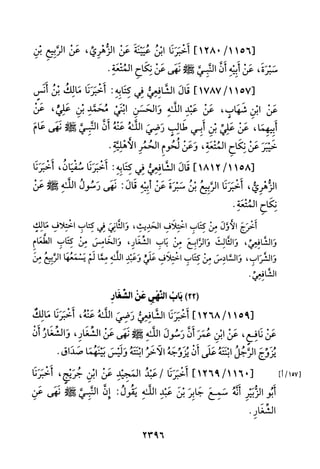 [١١٥٦/ ١٢٨٠] أَخْبَرَنَا ابْنُ عُيَيْنَةَ عَنْ الزُّهْرِيِّ، عَنِ الرَّبِيعِ بْنِ
سَبْرَةَ، عَنْ أَبِيْهِ أَنَّ النَّبِيَّ ﷺ نَهَى عَنْ نِكَاحِ الْمُتْعَةِ.
[١١٥٧/ ١٧٨٧] قَالَ الشَّافِعِيُّ فِي كِتَابِهِ: أَخْبَرَنَا مَالِكُ بْنُ أَنَسٍ
عَنْ ابْنِ شَهَابٍ، عَنْ عَبْدِ اللهِ وَالحَسَنِ ابْنَيْ مُحَمَّدِ بْنِ عَلِيٍّ، عَنْ
أَبِيهِمَا، عَنْ عَلِيِّ بْنِ أَبِي طَالِبٍ رَضِيَ اللهُ عَنْهُ أَنَّ النَّبِيَّ ﷺ نَهَى عَامَ
خَيْبَرَ عَنْ نِكَاحِ المُتْعَةِ، وَعَنْ لُحُومِ الحُمُرِ الأَهْلِيَّةِ.
[١١٥٨/ ١٨١٢] قَالَ الشَّافِعِيُّ فِي كِتَابِهِ: أَخْبَرَنَا سُفْيَانُ، أَخْبَرَنَا
الزُّهْرِيُّ، أَخْبَرَنَا الرَّبِيعُ بْنُ سَبْرَةَ عَنْ أَبِيْهِ قَالَ: نَهَى رَسُولُ اللهِ ﷺ عَنْ
نِكَاحِ المُتْعَةِ.
أَخْرَجَ الأَوَّلَ مِنْ كِتَابِ اخْتِلَافِ الحَدِيثِ، وَالثَّانِيَ فِي كِتابِ اخْتِلافِ مَالِكٍ
وَالشَّافِعِيِّ، وَالثَّالِثَ وَالرَّابِعَ مِنْ بَابِ الشِّغَارِ، وَالخَامِسَ مِنْ كِتَابِ الطَّعَامِ
وَالشَّرَابِ، وَالسَّادِسَ مِنْ كِتَابِ اخْتِلَافِ عَلِيٍّ وَعَبْدِ اللهِ مِمَّا لَمْ يَسْمَعْهُ الرَّبِيعُ مِنَ
الشَّافِعِيِّ.
(٢٢) بَابُ النَّهْيِ عَنْ الشِّغَارِ
[١١٥٩/ ١٢٦٨] أَخْبَرَنَا الشَّافِعِيُّ رَضِيَ اللهُ عَنْهُ، أَخْبَرَنَا مَالِكٌ
عَنْ نَافِعٍ، عَنْ ابْنِ عُمَرَ أَنَّ رَسُولَ اللهِ ﷺ نَهَى عَنْ الشِّغَارِ، وَالشِّغَارُ أَنْ
يُزَوِّجَ الرَّجُلُ ابْنَتَهُ عَلَى أَنْ يُزَوِّجَهُ الآخَرُ ابْنَتَهُ وَلَيْسَ بَيْنَهُمَا صَدَاق.
[١٥٧/أ] [١١٦٠/ ١٢٦٩] أَخْبَرَنَا / عَبْدُ المَجِيْدِ عَنْ ابْنِ جُرَيْجٍ، أَخْبَرَنَا
أَبُو الزُّبَيْرِ أَنَّهُ سَمِعَ جَابِرَ بْنَ عَبْدِ اللهِ يَقُولُ: إِنَّ النَّبِيَّ ﷺ نَهَى عَنِ
الشِّغَارِ.
٢٣٩٦